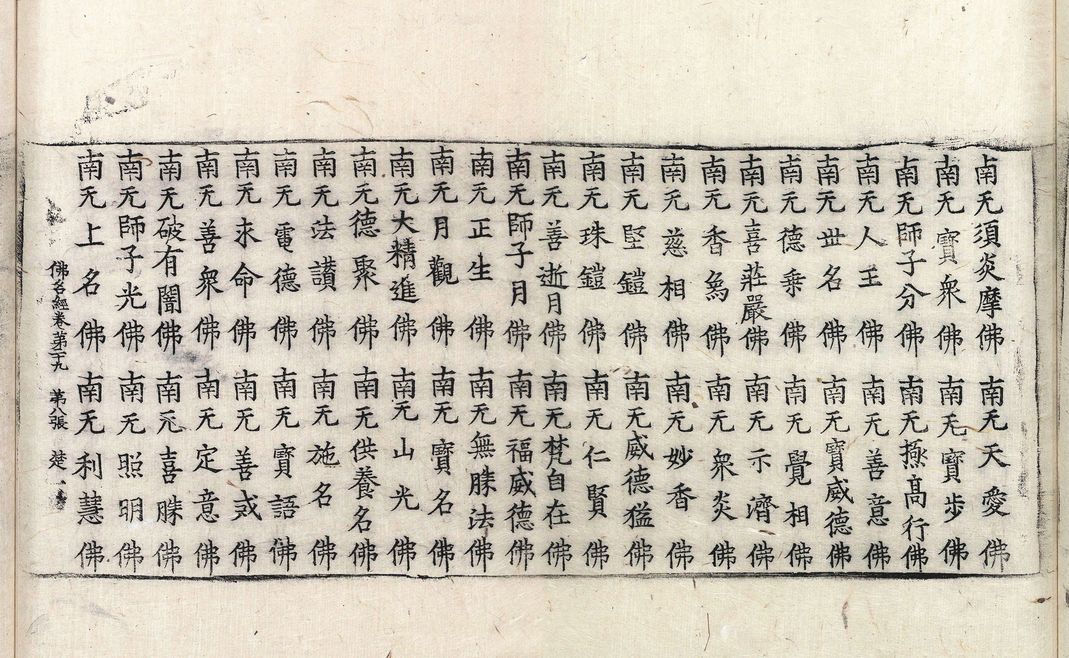 南无須炎摩佛 南无天愛佛
南无寳衆佛 南无寳步佛
南无師子分佛 南无極高行佛
南无人王佛 南无善意佛
南无世名佛 南无寳威德佛
南无德乗佛 南无覺相佛
南无喜莊嚴佛 南无示濟佛
南无香象佛 南无衆炎佛
南无慈相佛 南无妙香佛
南无堅鎧佛 南无威德猛佛
南无珠鎧佛 南无仁賢佛
南无善逝月佛 南无梵自在佛
南无師子月佛 南无福威德佛
南无正生佛 南无無勝法佛
南无月觀佛 南无寳名佛
南无大精進佛 南无山光佛
南无德聚佛 南无供養名佛
南无法讃佛 南无施名佛
南无電德佛 南无寳語佛
南无求命佛 南无善戒佛
南无善衆佛 南无定意佛
南无破有闇佛 南无喜勝佛
南无師子光佛 南无照明佛
南无上名佛 南无利慧佛
佛名經卷第二十九 第八張 楚